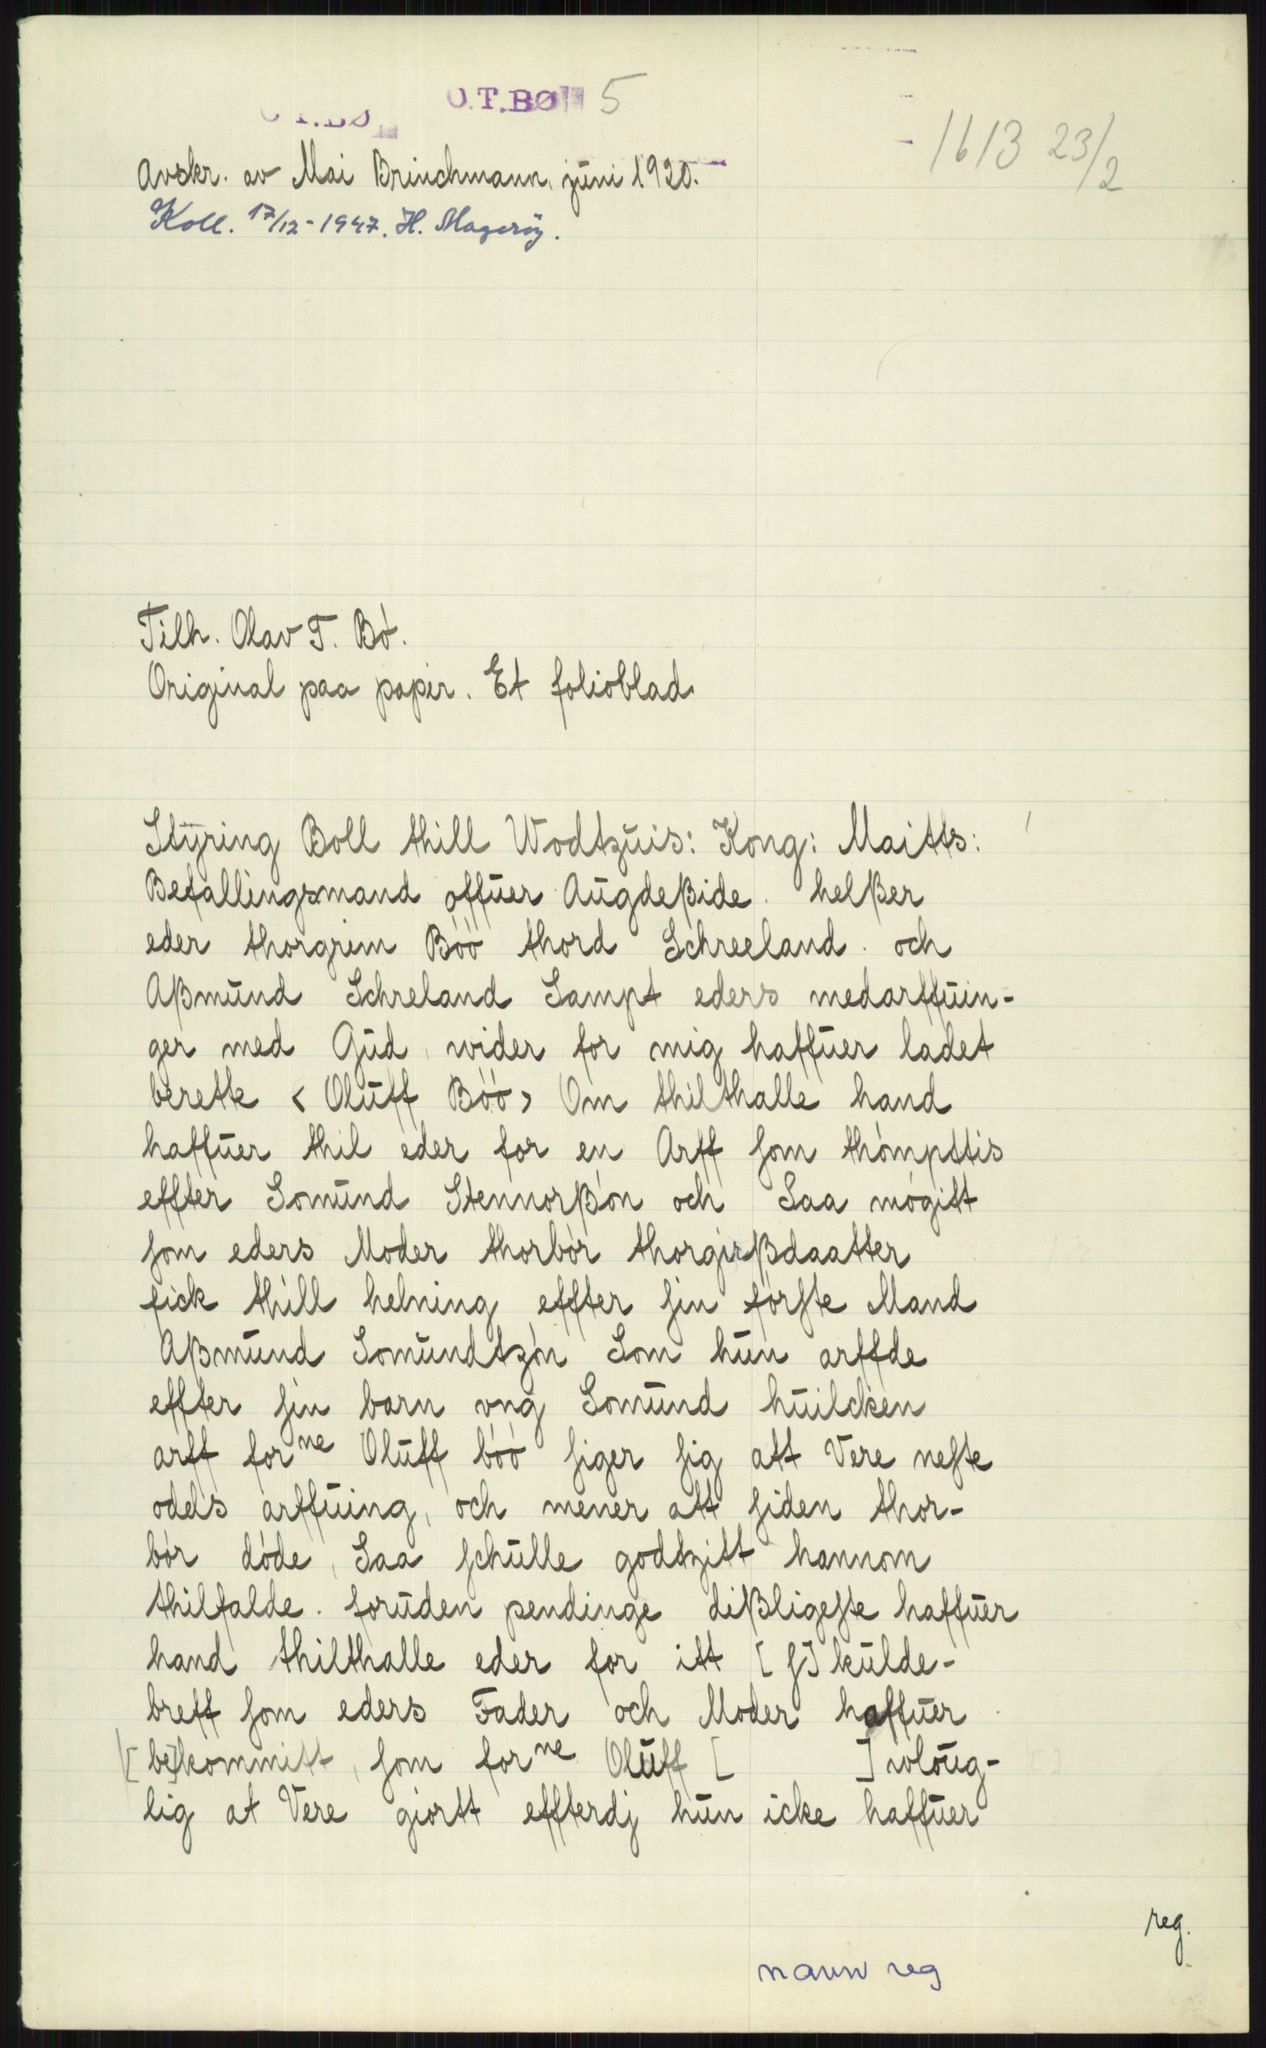 O.T.BØ 5
1613 23/2
Avskr. av Mai Brinchmann, juni 1920.
Koll. 17/12-1947. H. Magerøy.
Tilh. Olav T. Bø.
Original paa papir. Et folioblad
Styring Boll thill Wodtzuis: Kong: Maitts:
Befallingsmand offuer Augdeßide. helßer
eder thorgrim Böö thord Schreeland. och
Aßmund Schreland Sampt eders medarffuin-
ger med Gud, wider for mig haffuer ladet
berette < Oluff Böö > Om thilthalle hand
haffuer thil eder for en Arff som thömpttis
effter Somund Stennorßön och Saa mögitt
som eders Moder thorbör thorgirßdaatter
fick thill helning effter sin förste Mand
Aßmund Somundtzön Som hun arffde
effter sin barn vng Somund huilcken
arff forne Oluff böö siger sig att Vere neste
odels arffuing, och mener att siden thor-
bör döde, Saa schulle godtzitt hannom
thilfalde. foruden pendinge dißligeste haffuer
hand thilthalle eder for itt [s]kulde-
breff som eders Fader och Moder haffuer
[be]kommitt, som forne Oluff [ ] wloug-
lig at Vere giortt effterdj hun icke haffuer
reg.
navn reg